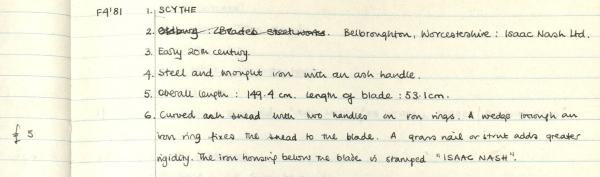 F4'81 1. SCYTHE
2. Oldbury : Brades steelworks. Belbroughton, Worcestershire : Isaac Nash Ltd.
3. Early 20th century.
4. Steel and wrought iron with an ash handle.
5. Overall length : 149.4 cm. Length of blade : 53.1cm.
6. Curved ash snead with two handles on iron rings. A wedge through an
£ 5 iron ring fixes the snead to the blade. A grass nail or strut adds greater
rigidity. The iron housing below the blade is stamped "ISAAC NASH".